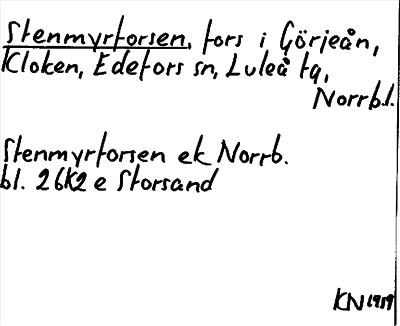 Stenmyrforsen, fors i Görjeån,
Kloken, Edefors sn, Luleå tg,
Norrb.l.
Stenmyrforsen ek Norrb.
bl. 26K2e Storsand
KN 1959